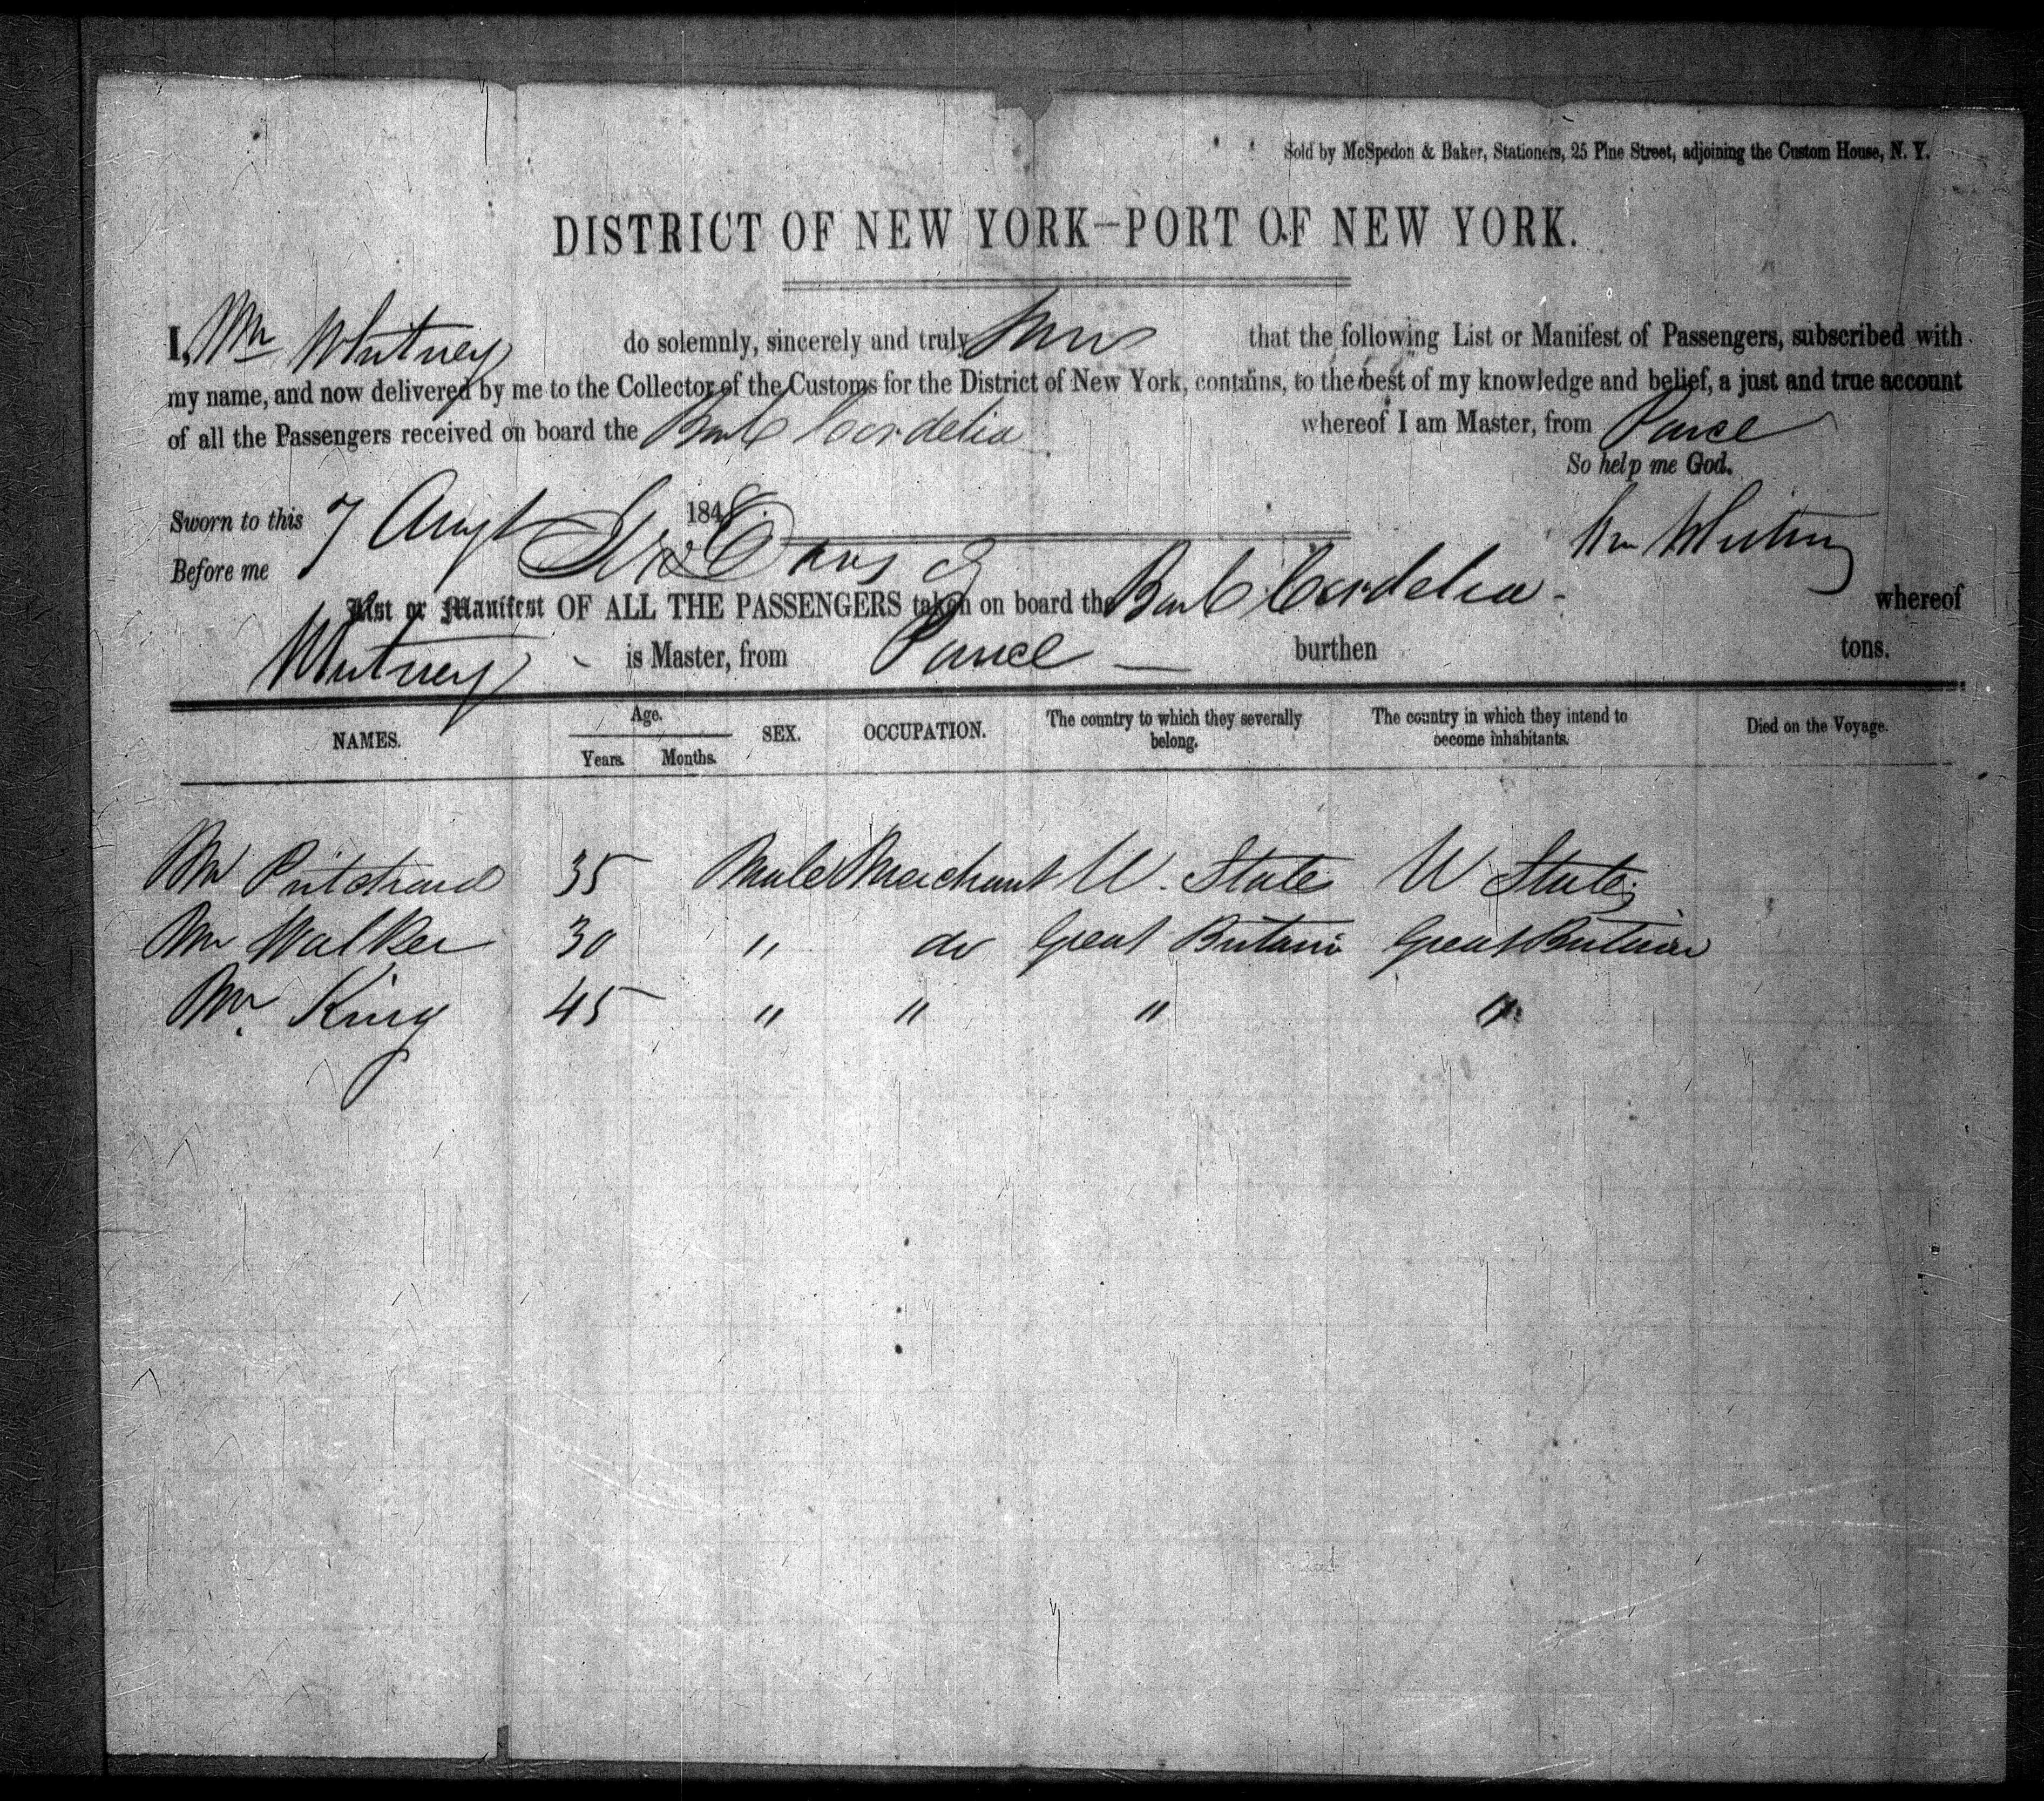 Sold by McSpedon & Baker, Stationers, 25 Pine Street, adjoining the Custom House, N. Y.
DISTRICT OF NEW YORK—PORT OF NEW YORK.
I, Wm Whitney do solemnly, sincerely and truly that the following List or Manifest of Passengers, subscribed with
my name, and now delivered by me to the Collector of the Customs for the District of New York, contains, to the best of my knowledge and belief, a just and true account
of all the Passengers received on board the Bark Cordelia whereof I am Master, from Ponce
So help me God.
Sworn to this 7 Augt 1848
Wm Whitney
Before me
List or Manifest OF ALL THE PASSENGERS taken on board the Bark Cordelia - whereof
Whitney - is Master, from Ponce — burthen tons.
NAMES. Age. Years. Months. SEX. OCCUPATION. The country to which they severally belong. The country in which they intend to become inhabitants. Died on the Voyage.
Mr Pritchard 35 Male Merchant U. States U States
Mr Walker 30 " do Great Britain Great Britain
Mr. King 45 " " " "